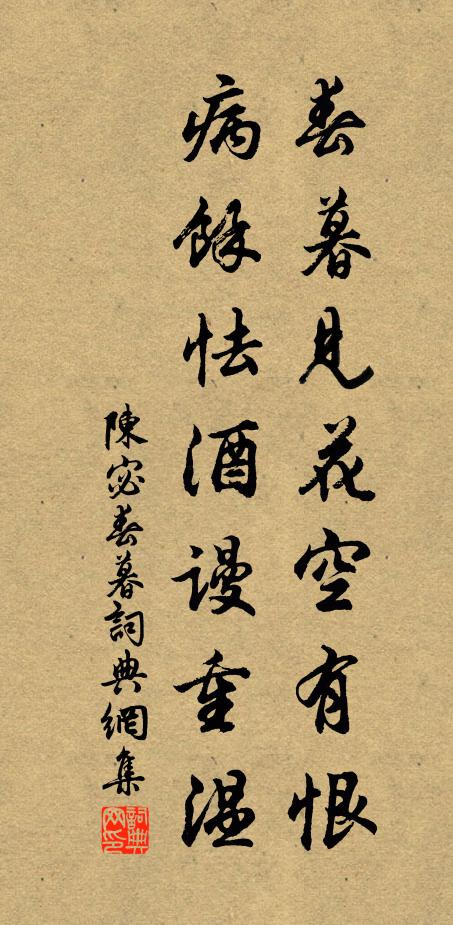 春暮見花空有恨
病餘怯酒謾重温
陳宓春暮詞典網集
詞典网印